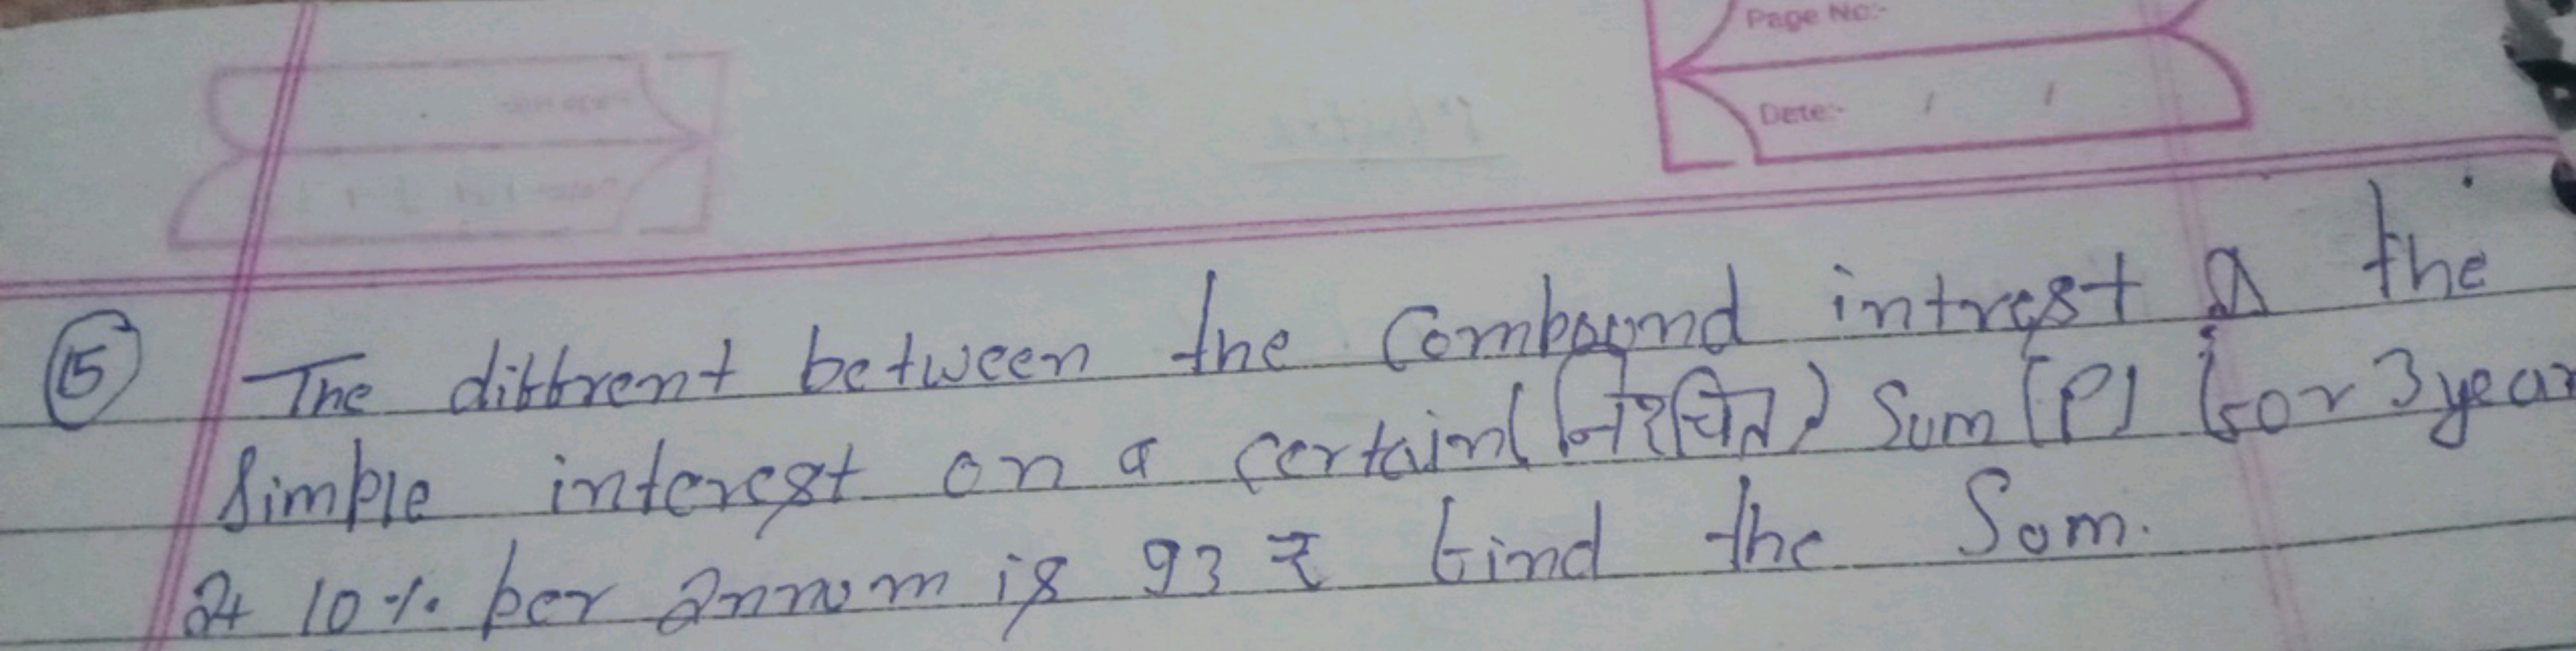 Page No:-
Date:- / /
15 The diffrent between the Compound intrest & the
Simple interest on a certain (निश्चित) Sum (P) for 3 year
at 10 % per annum is 93 ₹ find the Sum.